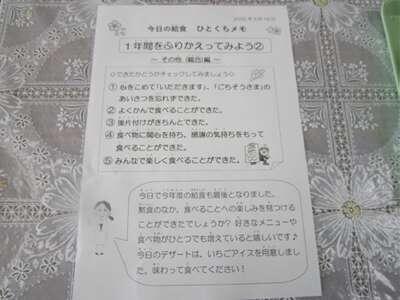 今日の給食　ひとくちメモ
1年間をふりかえってみよう②
～ その他（総合）編 ～
◇できたかどうかチェックしてみましょう◇
① 心をこめて「いただきます」、「ごちそうさま」の
あいさつを忘れずできた。
② よくかんで食べることができた。
③ 後片付けがきちんとできた。
④ 食べ物に関心を持ち、感謝の気持ちをもって
食べることができた。
⑤ みんなで楽しく食べることができた。
今日で今年度の給食も最後となりました。
黙食のなか、食べることへの楽しみを見つける
ことができたでしょうか？好きなメニューや
食べ物がひとつでも増えていると嬉しいです♪
今日のデザートは、いちごアイスを用意しまし
た。味わって食べてください！